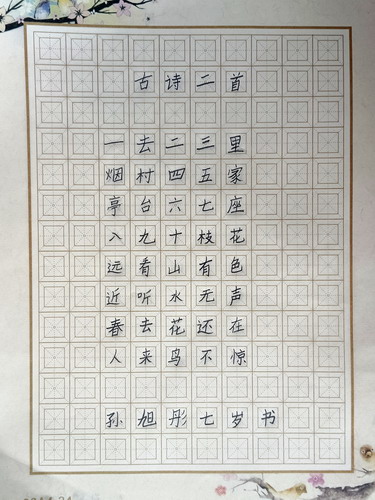 古诗二首
一去二三里
烟村四五家
亭台六七座
入九十枝花
远看山有色
近听水无声
春去花还在
人来鸟不惊
孙旭彤七岁书